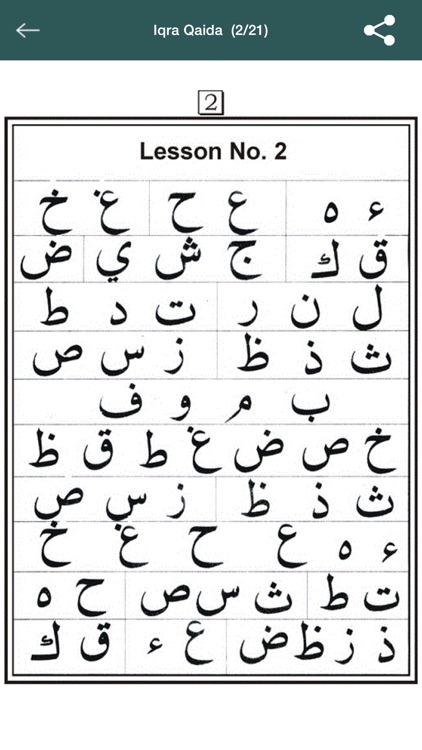 Iqra Qaida (2/21)
2
Lesson No. 2
ء ه ع ح غ خ
ق ك ج ش ي ض
ل ن ر ت د ط
ث ذ ظ ز س ص
ب م و ف
خ ص ض غ ط ق ظ
ث ذ ظ ز س ص
ء ه ع ح غ خ
ت ط ث س ص ح ه
ذ ز ظ ض ع ء ق ك